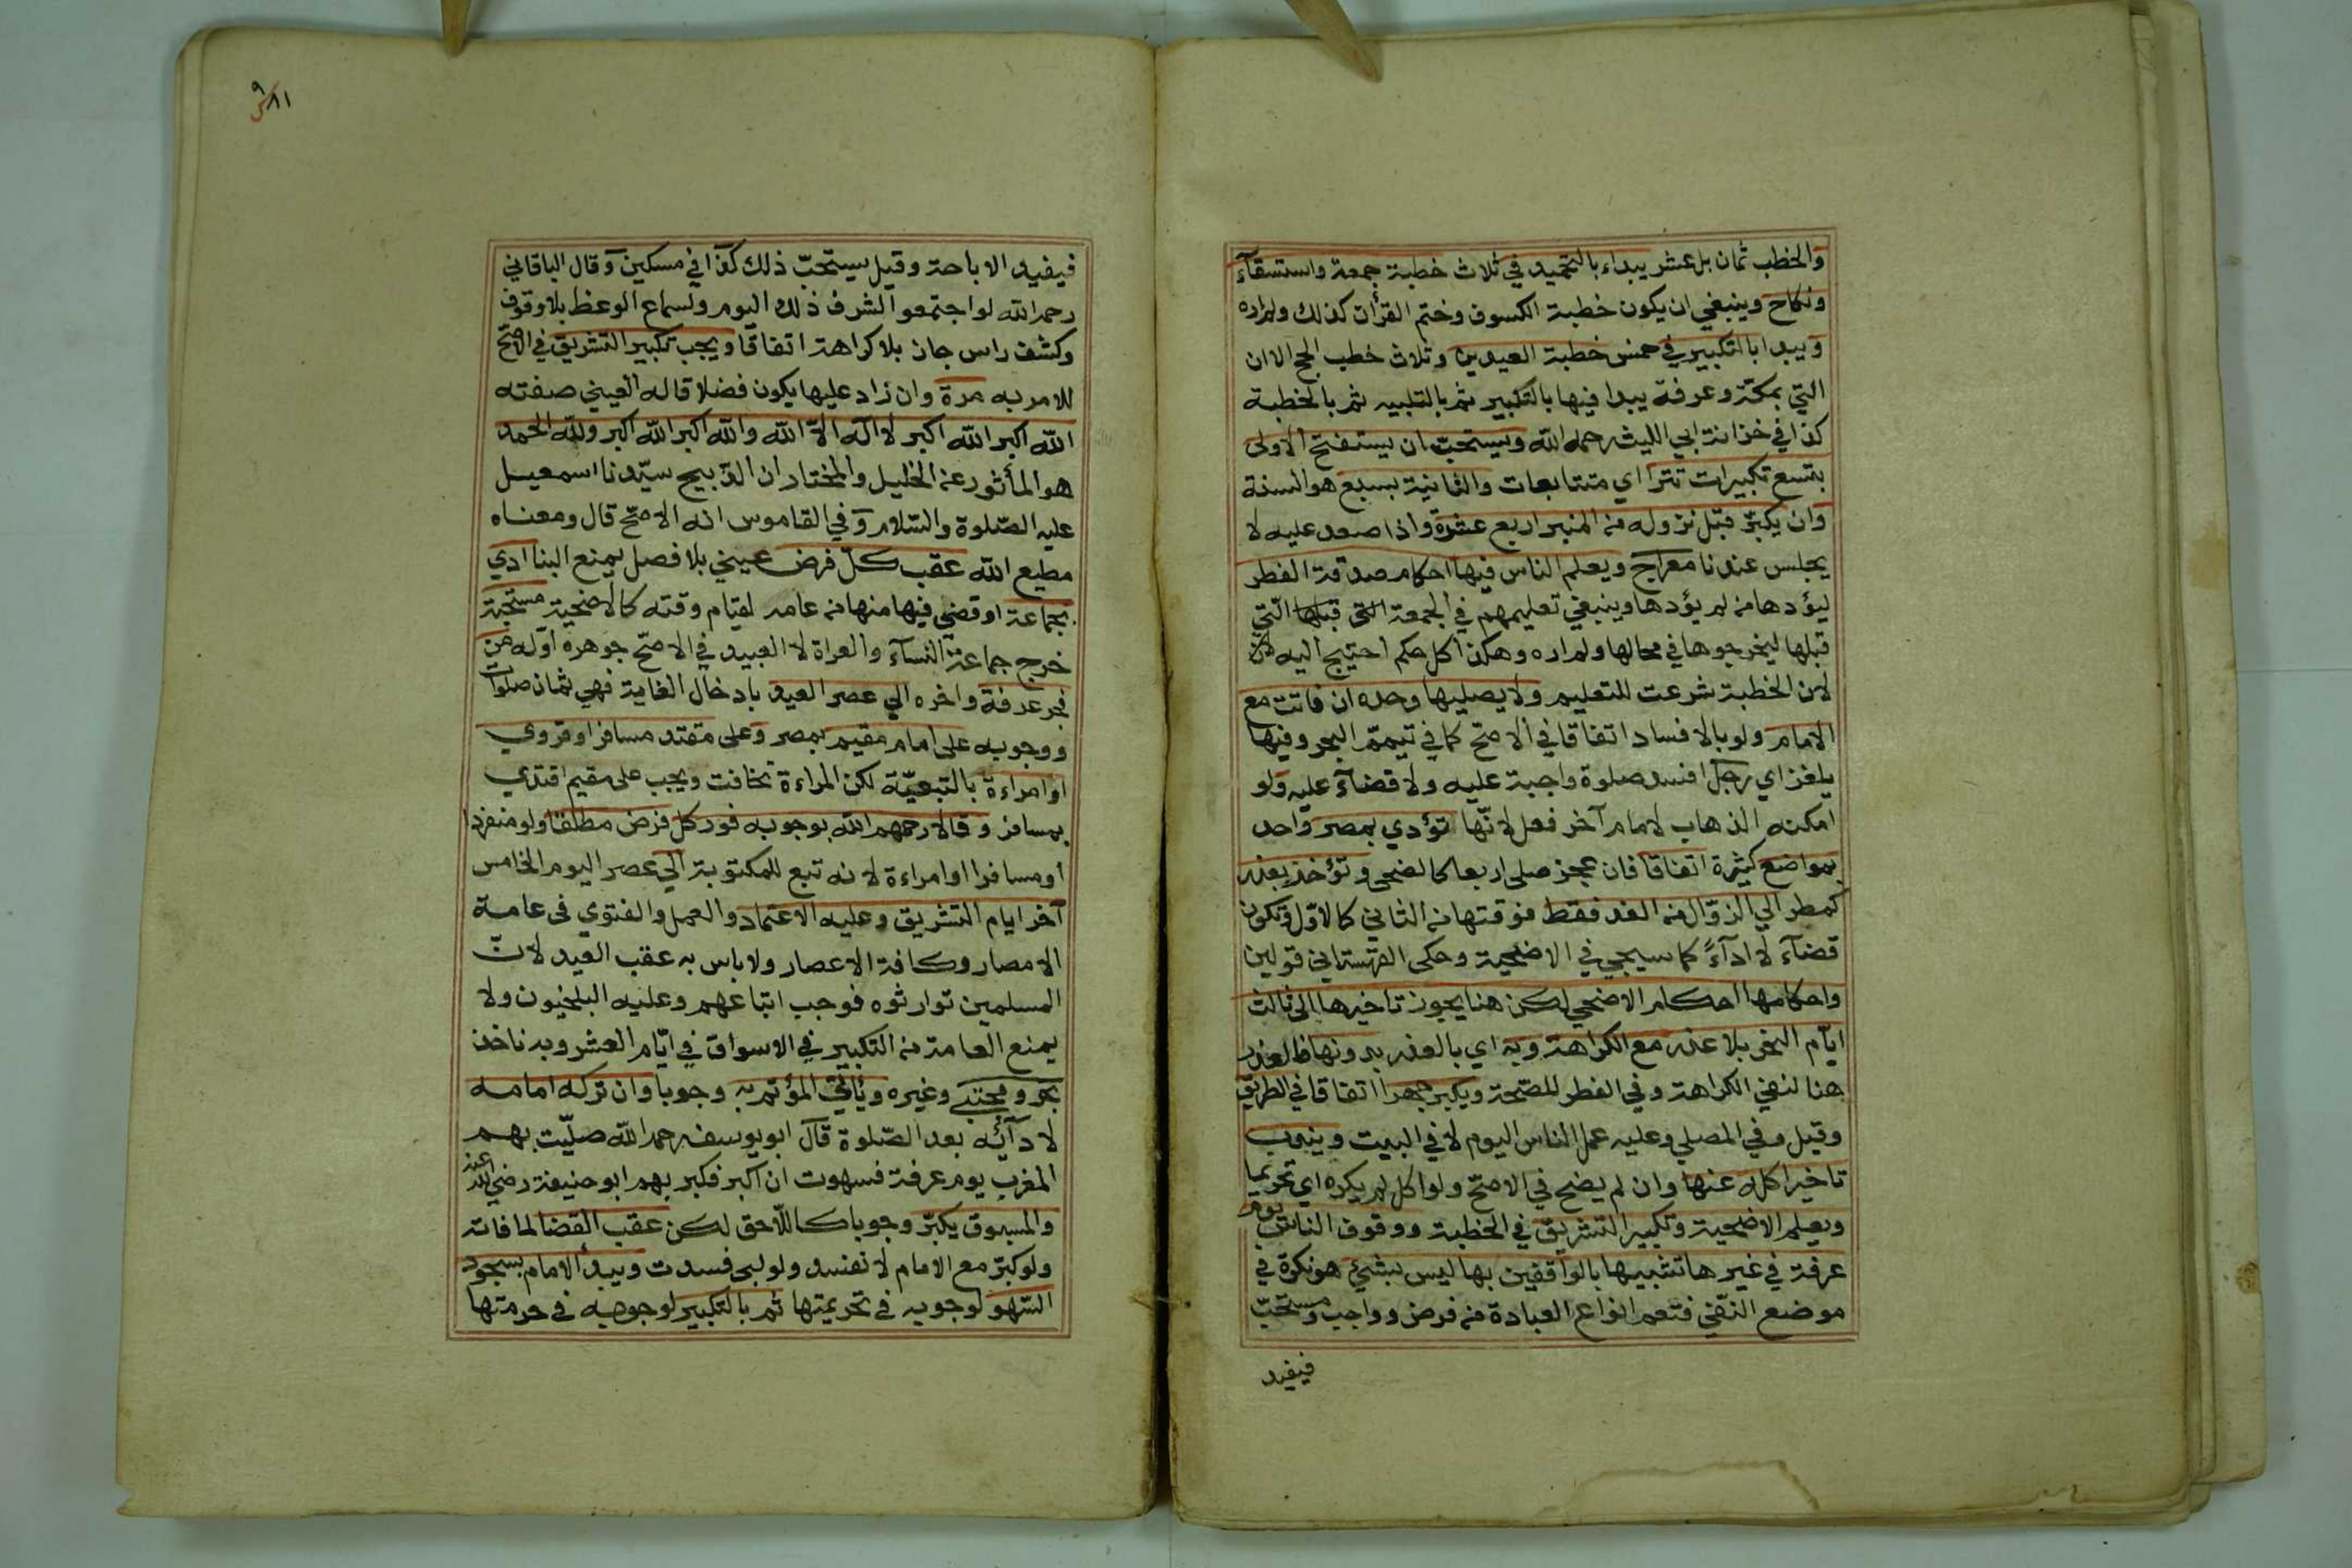 والخطب ثمان بل عشر يبداء بالتحميد في ثلاث خطبة جمعة واستسقآء
ونكاح وينبغي ان يكون خطبة الكسوف وختم القرأن كذلك ولم اره
ويبدا بالتكبير في خمس خطبة العيدين وثلاث خطب الحج الا ان
التي بمكة وعرفة يبدا فيها بالتكبير ثم بالتلبيه ثم بالخطبة
كذا في خزانة ابي الليث رحمه الله ويستحب ان يستفتح الاولى
بتسع تكبيرات تترا اي متتابعات والثانية بسبع هو السنة
وان يكبر قبل نزوله من المنبر اربع عشرة واذا صعد عليه لا
يجلس عندنا معراج ويعلم الناس فيها احكام صدقة الفطر
ليؤدها من لم يؤدها وينبغي تعليمهم في الجمعة التى قبلها التي
قبلها ليخرجوها في محالها ولم اره وهكذا كل حكم احتيج اليه لان
لان الخطبة شرعت للتعليم ولا يصليها وحده ان فاتت مع
الامام ولو بالافساد اتفاقا في الاصح كما في تيمم البحر وفيها
يلغز اي رجل افسد صلوة واجبة عليه ولا قضآء عليه ولو
امكنه الذهاب لامام آخر فعل لانها تؤدي بمصر واحد
بمواضع كثيرة اتفاقا فان عجز صلى اربعا كالضحى وتؤخذ بعذر
كمطر الي الزوال من الغد فقط فوقتها من الثاني كالاول وتكون
قضآء لا ادآءً كما سيجي في الاضحية وحكى القهستاني قولين
واحكامها احكام الاضحي لكن هنا يجوز تاخيرها الى ثالث
ايام النحر بلا عذر مع الكراهة وبه اي بالعذر بدونها فالعذر
هنا لنفي الكراهة وفي الفطر للصحة ويكبر جهرا اتفاقا في الطريق
وقيل وفي المصلي وعليه عمل الناس اليوم لا في البيت ويندب
تاخير اكله عنها وان لم يضح في الاصح ولو اكل لم يكره اي تحريما
ويعلم الاضحية وتكبير التشريق في الخطبة ووقوف الناس يوم
عرفة في غيرها تشبيها بالواقفين بها ليس بشئ هو نكرة في
موضع النفي فتعم انواع العبادة من فرض وواجب ومستحب
فيفيد
٩٨١
فيفيد الاباحة وقيل يستحب ذلك كذا في مسكين وقال الباقاني
رحمه الله لو اجتمعوا لشرف ذلك اليوم ولسماع الوعظ بلا وقوف
وكشف راس جان بلا كراهة اتفاقا ويجب تكبير التشريق في الاصح
للامر به مرة وان زاد عليها يكون فضلا قاله العيني صفته
الله اكبر الله اكبر لا اله الا الله والله اكبر الله اكبر ولله الحمد
هو المأثور عن الخليل والمختار ان الذبيح سيدنا اسمعيل
عليه الصلوة والسلام وفي القاموس انه الاصح قال ومعناه
مطيع الله عقب كل فرض عيني بلا فصل يمنع البنا ادي
بجماعة او قضي فيها منها من عامه لقيام وقته كالاضحية مستحبة
خرج جماعة النسآء والعراة لا العبيد في الاصح جوهره اوله من
فجر عرفة واخره الي عصر العيد بادخال الغاية فهي ثمان صلوات
ووجوبه على امام مقيم بمصر وعلى مقتد مسافر او قروي
او امراءة بالتبعية لكن المراءة تخافت ويجب على مقيم اقتدي
بمسافر وقالا رحمهم الله بوجوبه فور كل فرض مطلقا ولو منفردا
او مسافرا او امراءة لانه تبع للمكتوبة الي عصر اليوم الخامس
آخر ايام التشريق وعليه الاعتماد والعمل والفتوي فى عامة
الامصار وكافة الاعصار ولا باس به عقب العيد لان
المسلمين توارثوه فوجب اتباعهم وعليه البلخيون ولا
يمنع العامة من التكبير في الاسواق في ايام العشر وبه ناخذ
بحر ومجتبي وغيره ويأتي المؤتم به وجوبا وان تركه امامه
لادآئه بعد الصلوة قال ابو يوسف رحمه الله صليت بهم
المغرب يوم عرفة فسهوت ان اكبر فكبر بهم ابو حنيفة رضي الله عنه
والمسبوق يكبر وجوبا كاللاحق لكن عقب القضا لما فاته
ولو كبر مع الامام لا تفسد ولو لبى فسدت ويبدأ الامام بسجود
السهو لوجوبه في تحريمتها ثم بالتكبير لوجوبه فى حرمتها